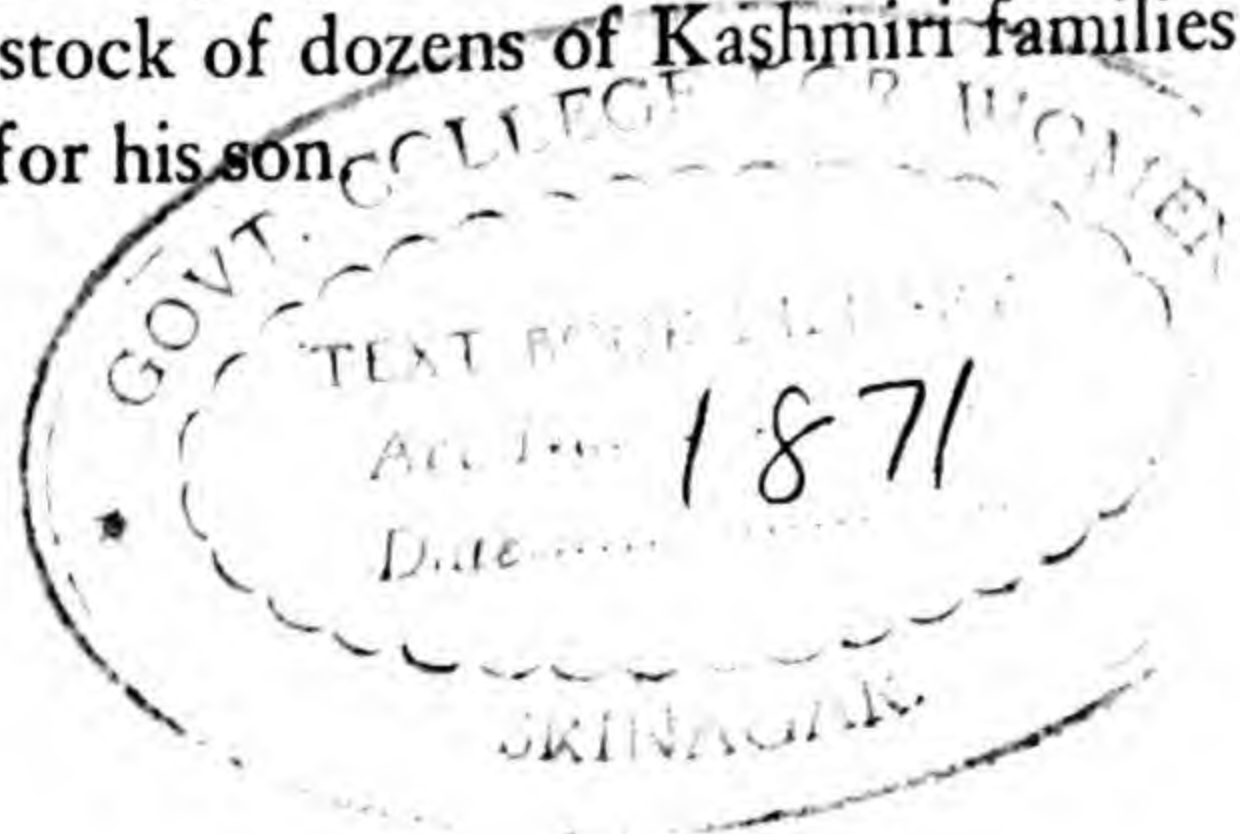 stock of dozens of Kashmiri families
for his son.
GOVT. COLLEGE FOR WOMEN
TEXT BOOK
1871
Date
SRINAGAR.